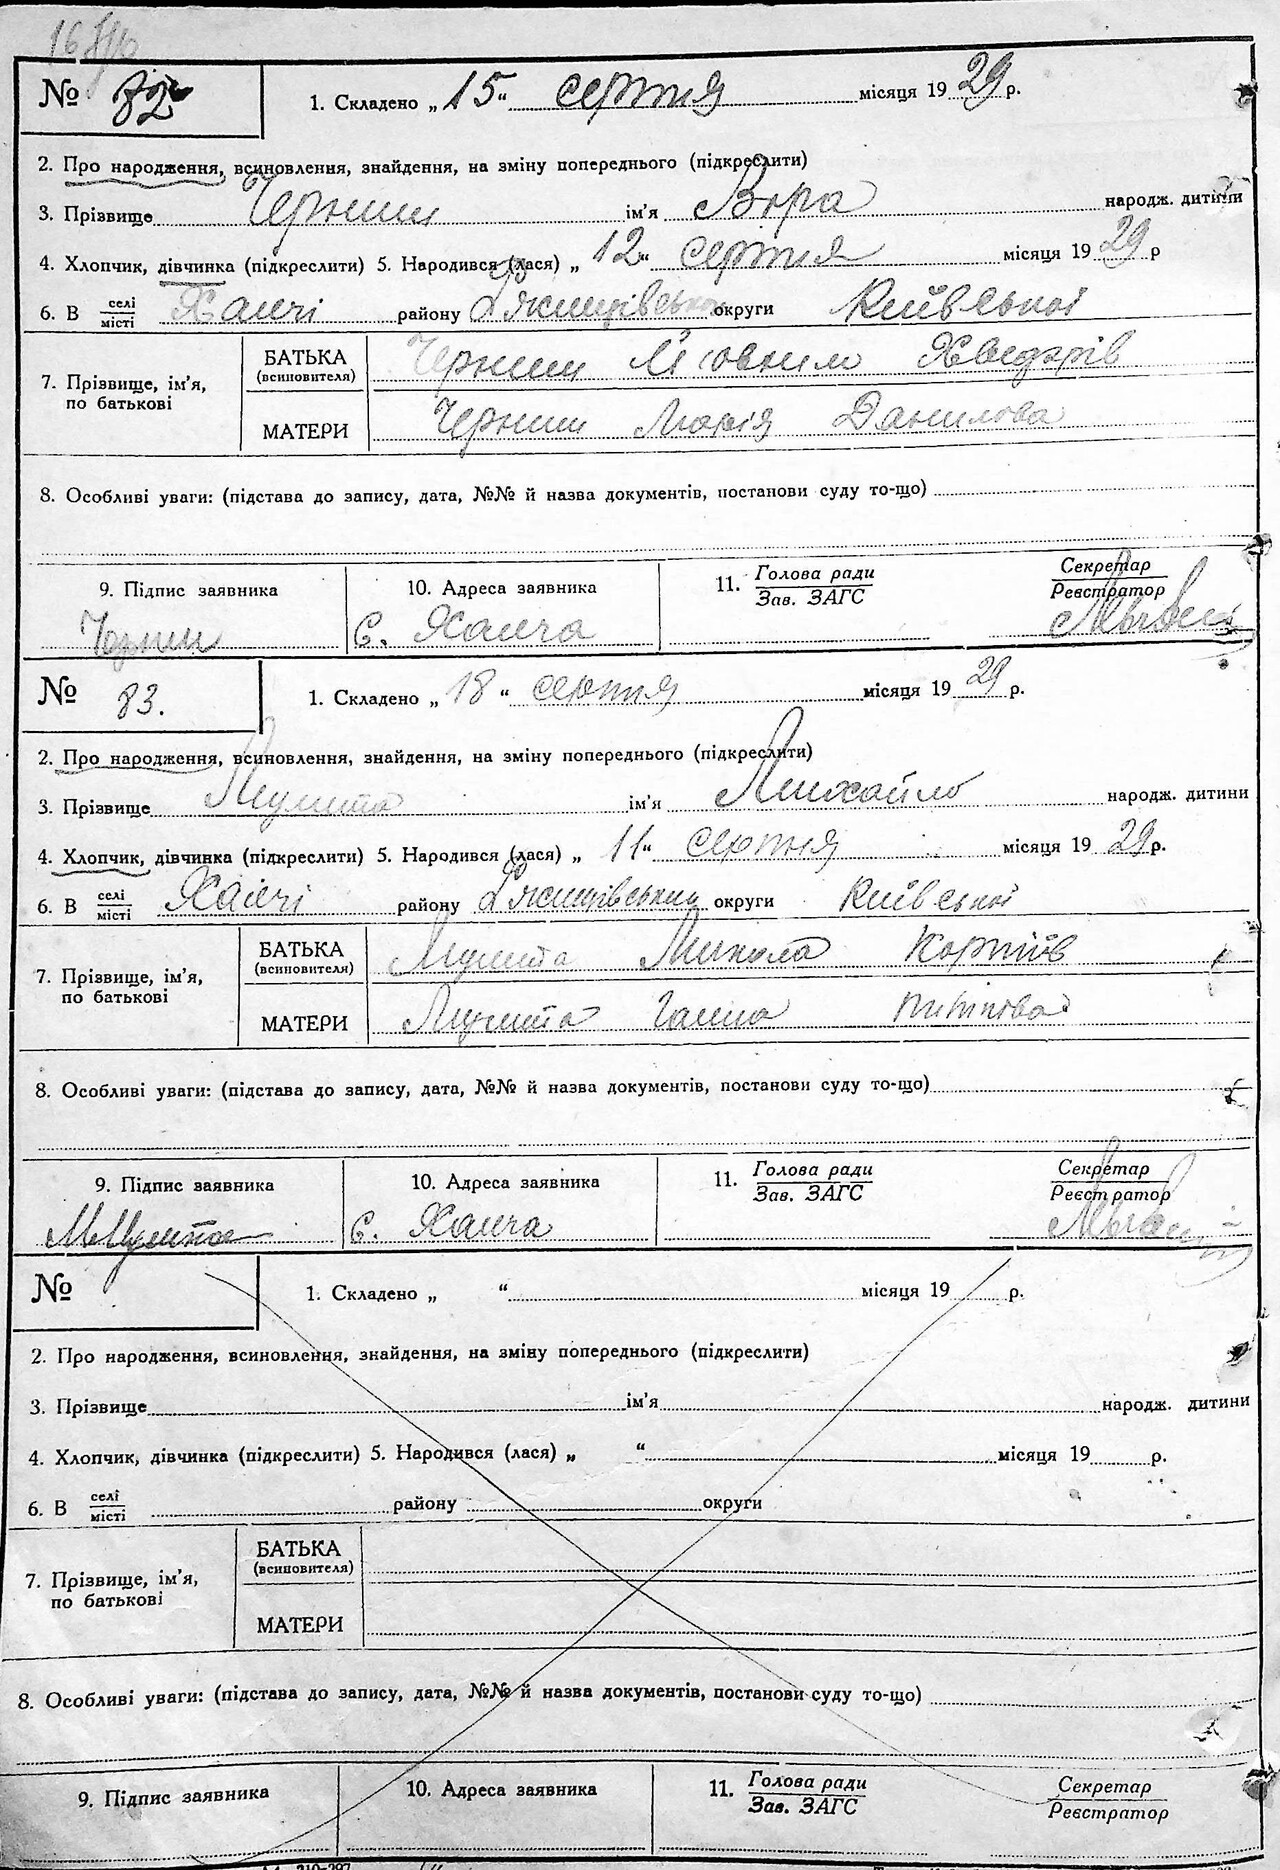 № 82
1. Складено „ 15 “ серпня місяця 19 29 р.
2. Про народження, всиновлення, знайдення, на зміну попереднього (підкреслити)
3. Прізвище Черниш ім'я Віра народж. дитини
4. Хлопчик, дівчинка (підкреслити) 5. Народився (лася) „ 12 “ серпня місяця 19 29 р
6. В селі/місті Халчі району Ржищівськ округи Київської
7. Прізвище, ім'я, по батькові
БАТЬКА (всиновителя) Черниш Хведорів
МАТЕРИ Черниш Марія Данилова
8. Особливі уваги: (підстава до запису, дата, №№ й назва документів, постанови суду то-що)
9. Підпис заявника 10. Адреса заявника 11. Голова ради/Зав. ЗАГС Секретар/Реєстратор
Черниш с. Халча
№ 83.
1. Складено „ 18 “ серпня місяця 19 29 р.
2. Про народження, всиновлення, знайдення, на зміну попереднього (підкреслити)
3. Прізвище Мулита ім'я Михайло народж. дитини
4. Хлопчик, дівчинка (підкреслити) 5. Народився (лася) „ 11 “ серпня місяця 19 29 р.
6. В селі/місті Халчі району Ржищівський округи Київської
7. Прізвище, ім'я, по батькові
БАТЬКА (всиновителя) Мулита Микола Корніїв
МАТЕРИ Мулита Ганна
8. Особливі уваги: (підстава до запису, дата, №№ й назва документів, постанови суду то-що)
9. Підпис заявника 10. Адреса заявника 11. Голова ради/Зав. ЗАГС Секретар/Реєстратор
М Мулита с. Халча
№
1. Складено „ “ місяця 19 р.
2. Про народження, всиновлення, знайдення, на зміну попереднього (підкреслити)
3. Прізвище ім'я народж. дитини
4. Хлопчик, дівчинка (підкреслити) 5. Народився (лася) „ “ місяця 19 р.
6. В селі/місті району округи
7. Прізвище, ім'я, по батькові
БАТЬКА (всиновителя)
МАТЕРИ
8. Особливі уваги: (підстава до запису, дата, №№ й назва документів, постанови суду то-що)
9. Підпис заявника 10. Адреса заявника 11. Голова ради/Зав. ЗАГС Секретар/Реєстратор